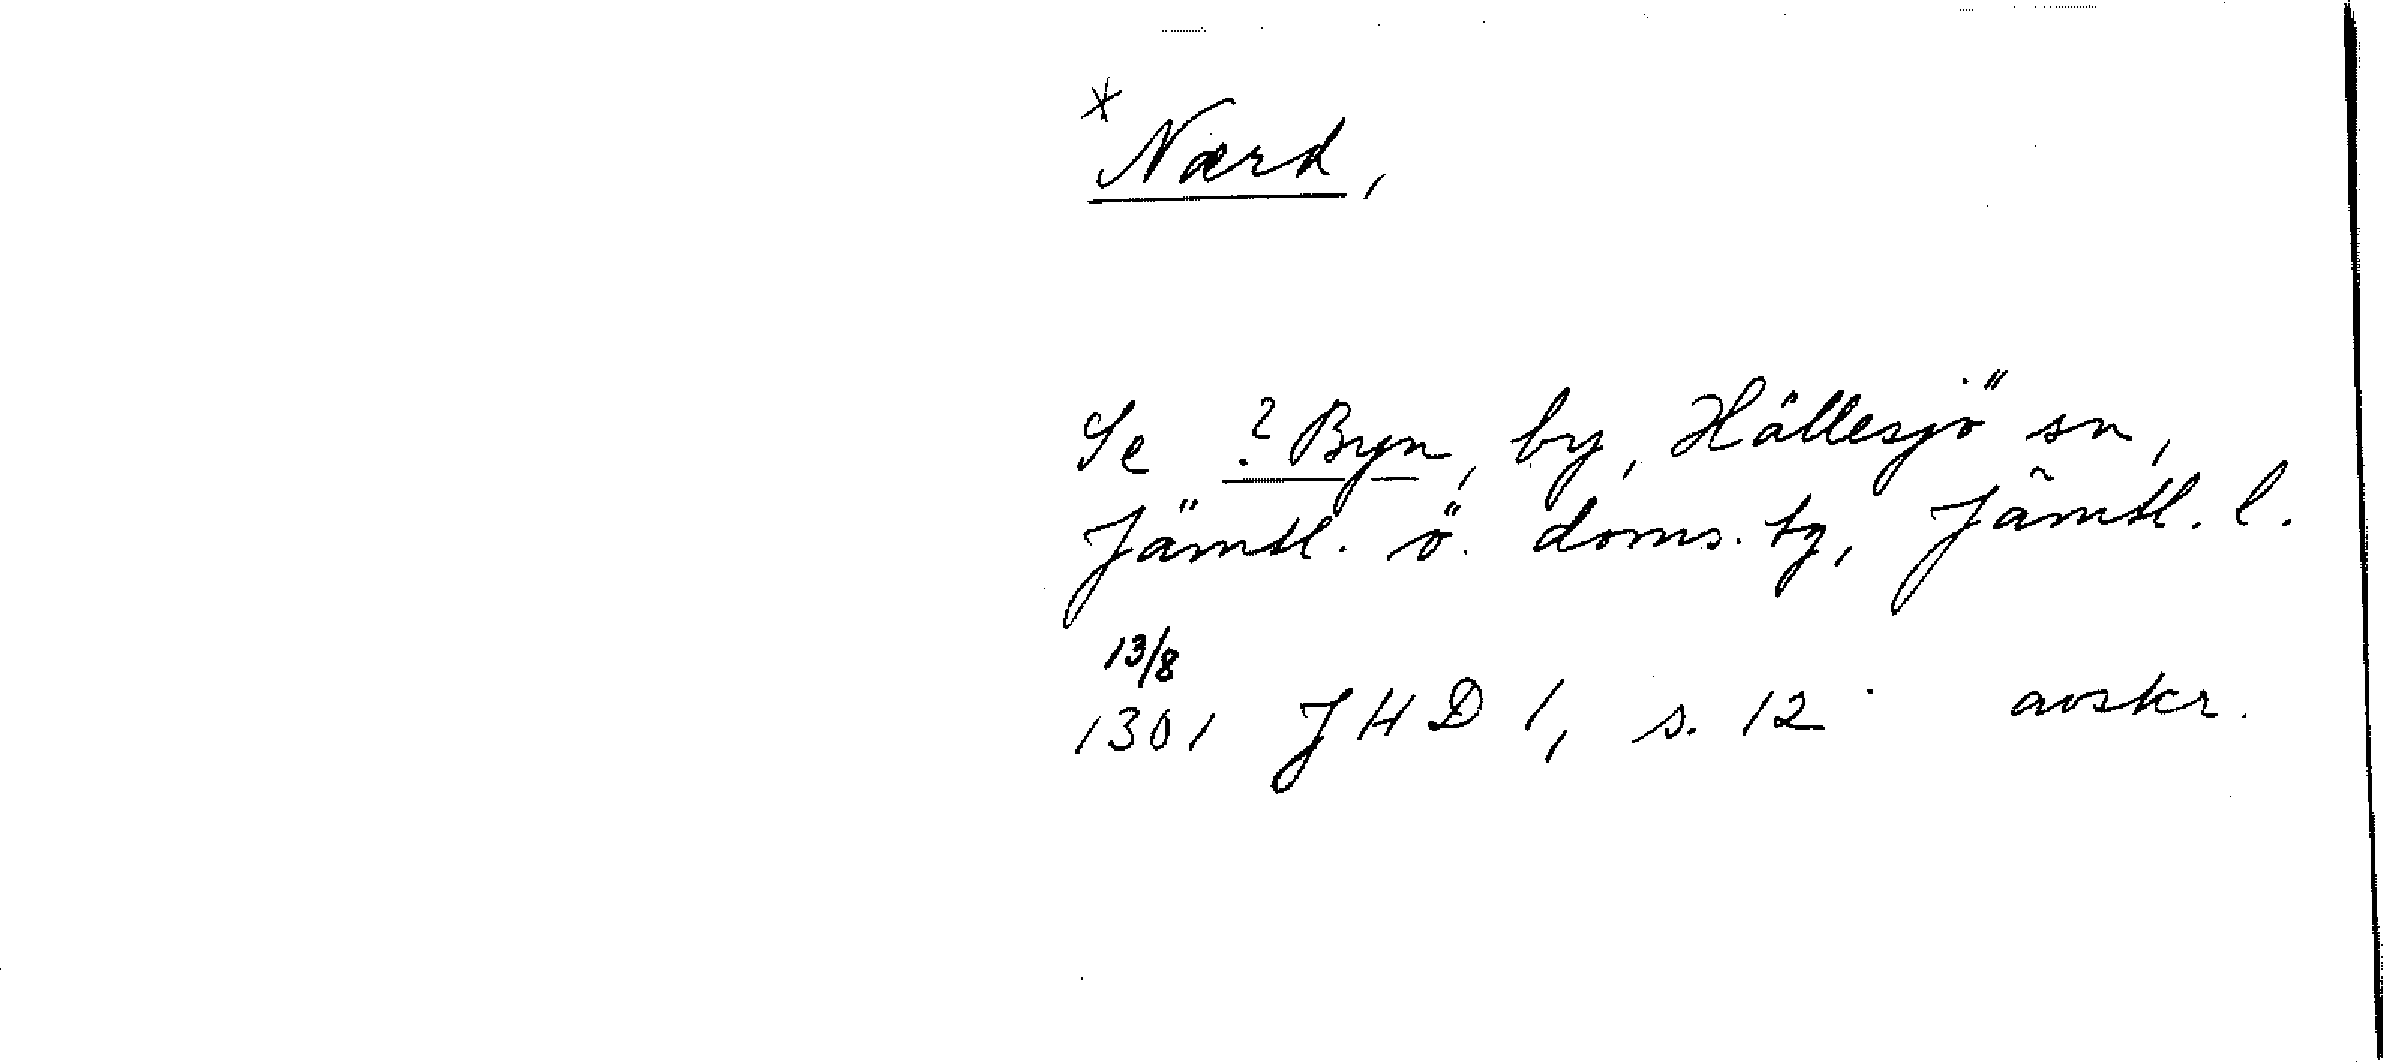 *
Nærd,
Se ? Byn, by, Hällesjö sn,
Jämtl. ö. doms. tg, Jämtl. l.
13/8
1301 JHD 1, s. 12 avskr.